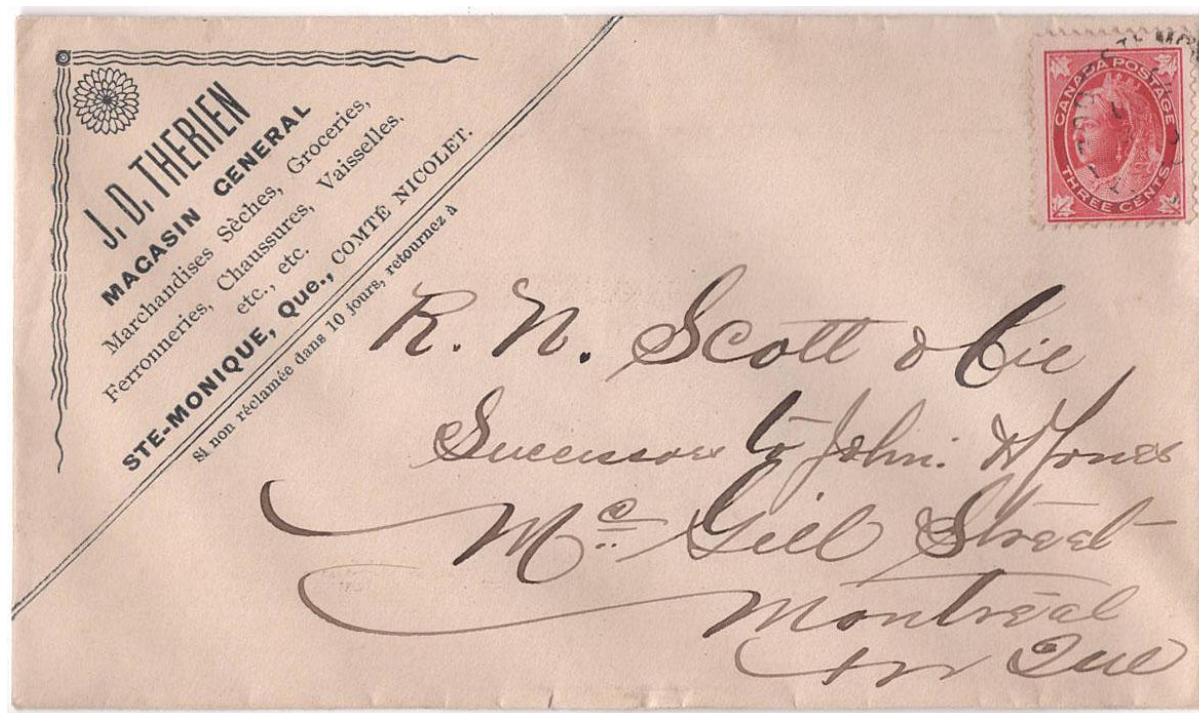 J. D. THERIEN
MAGASIN GENERAL
Marchandises Sèches, Groceries,
Ferronneries, Chaussures, Vaisselles,
etc., etc.
STE-MONIQUE, Que., COMTÉ NICOLET.
Si non réclamée dans 10 jours, retournez à
CANADA POSTAGE
THREE CENTS
R. N. Scott & Cie
Successors to John. H Jones
Mc Gill Street
Montréal
Que